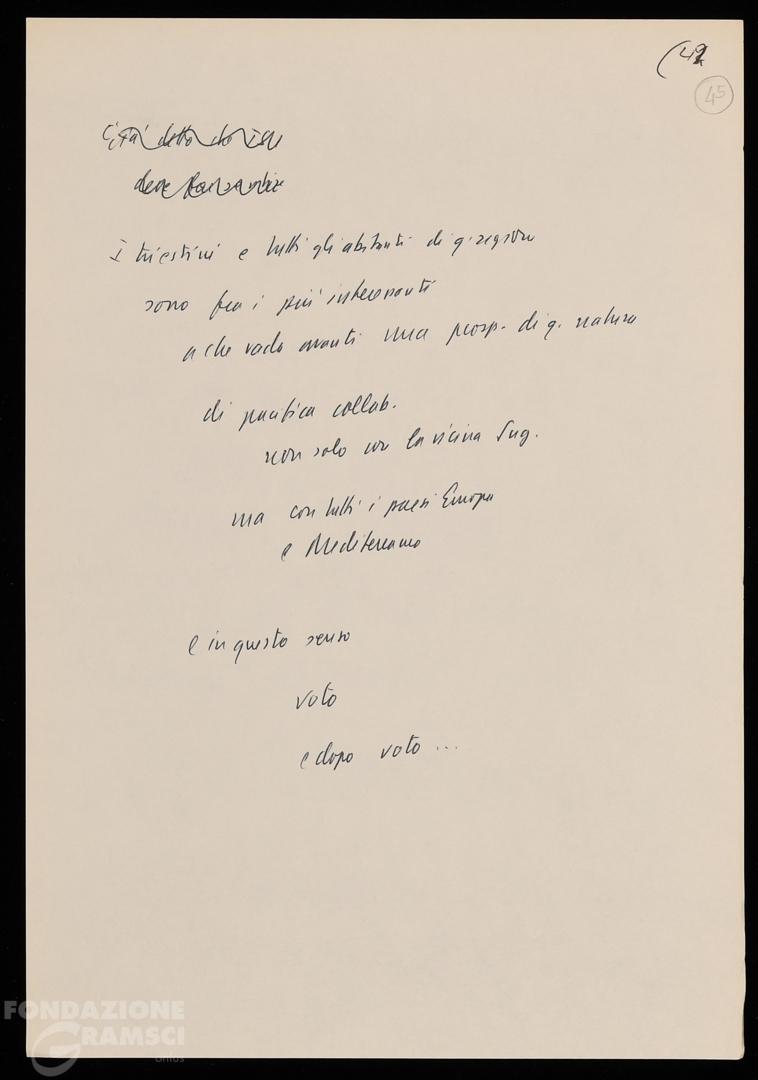 (42
45
detto
deve
I triestini e tutti gli abitanti di q. regione
sono fra i più interessati
a che vada avanti una prosp. di q. natura
di pacifica collab.
non solo con la vicina Jug.
ma con tutti i paesi Europa
e Mediterraneo
e in questo senso
voto
e dopo voto ...
FONDAZIONE
GRAMSCI
onlus